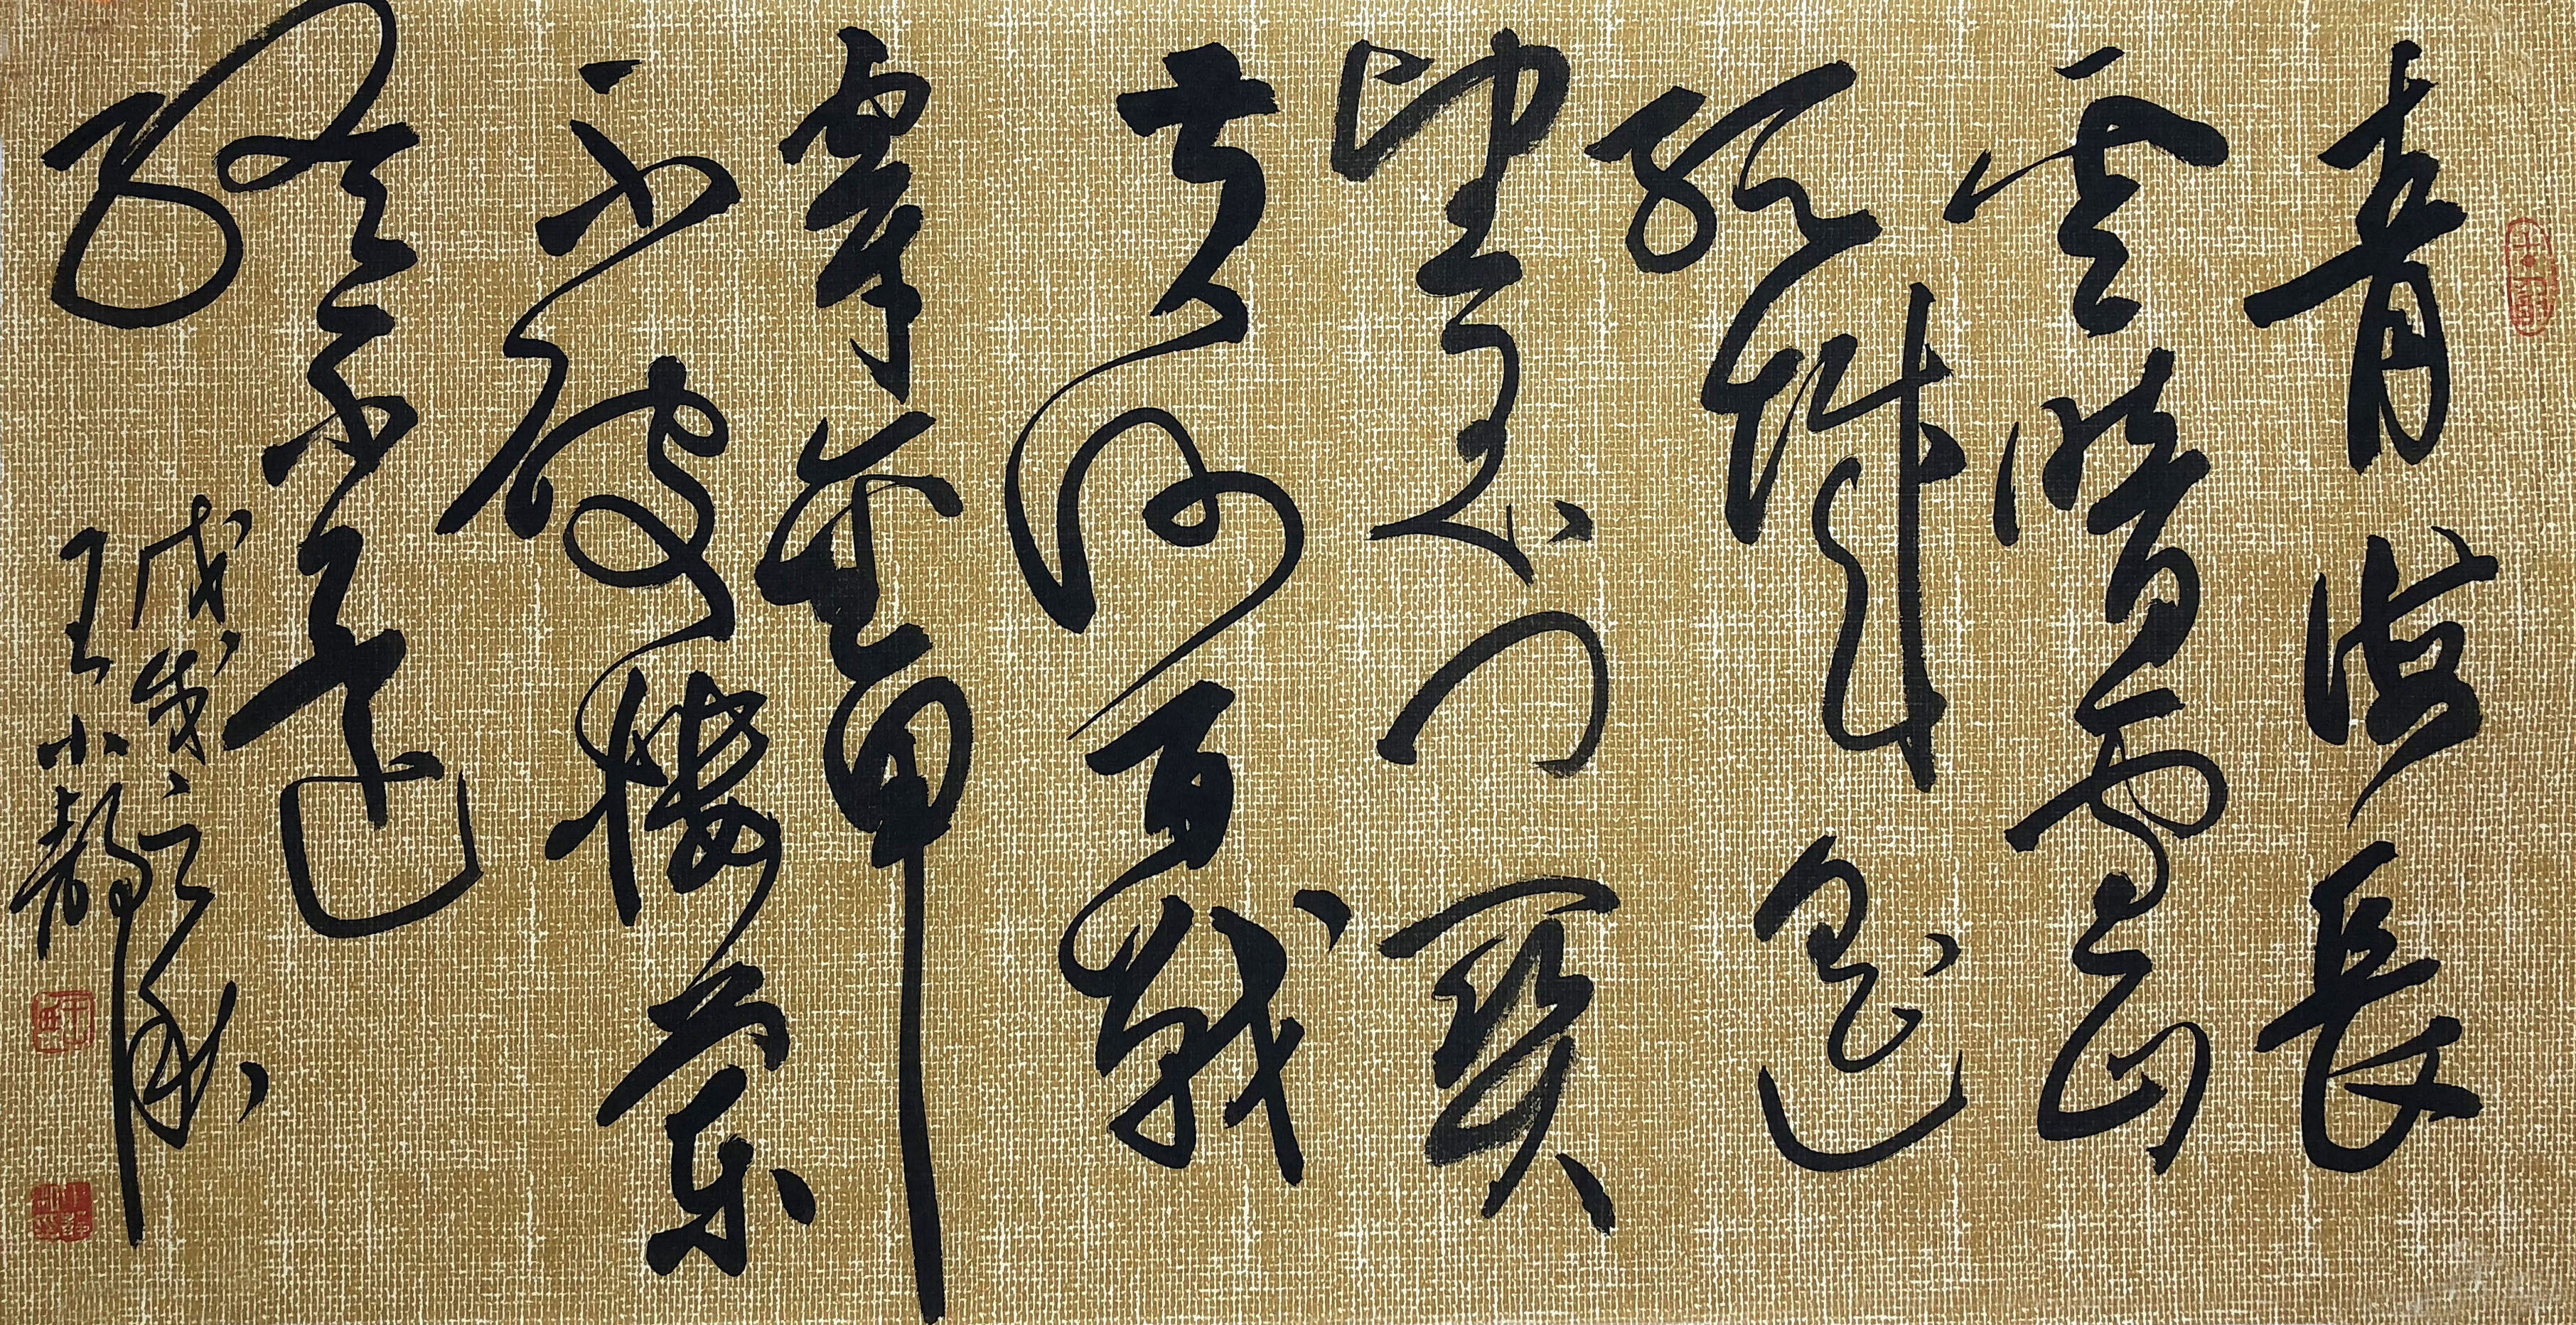 青海長
云暗雪山
孤城遥
望玉门關
黄沙百戰
穿金甲
不破樓蘭
終不還
戊戌之秋
王小靜